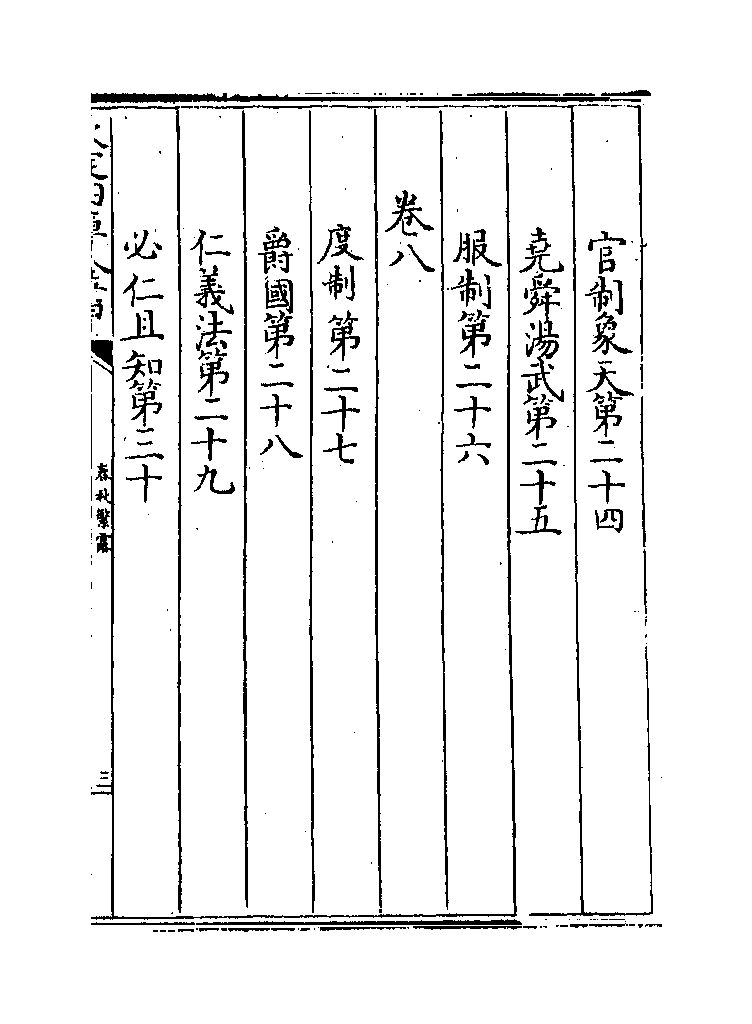 官制象天第二十四
堯舜湯武第二十五
服制第二十六
卷八
度制第二十七
爵國第二十八
仁義法第二十九
必仁且知第三十
春秋繁露
三